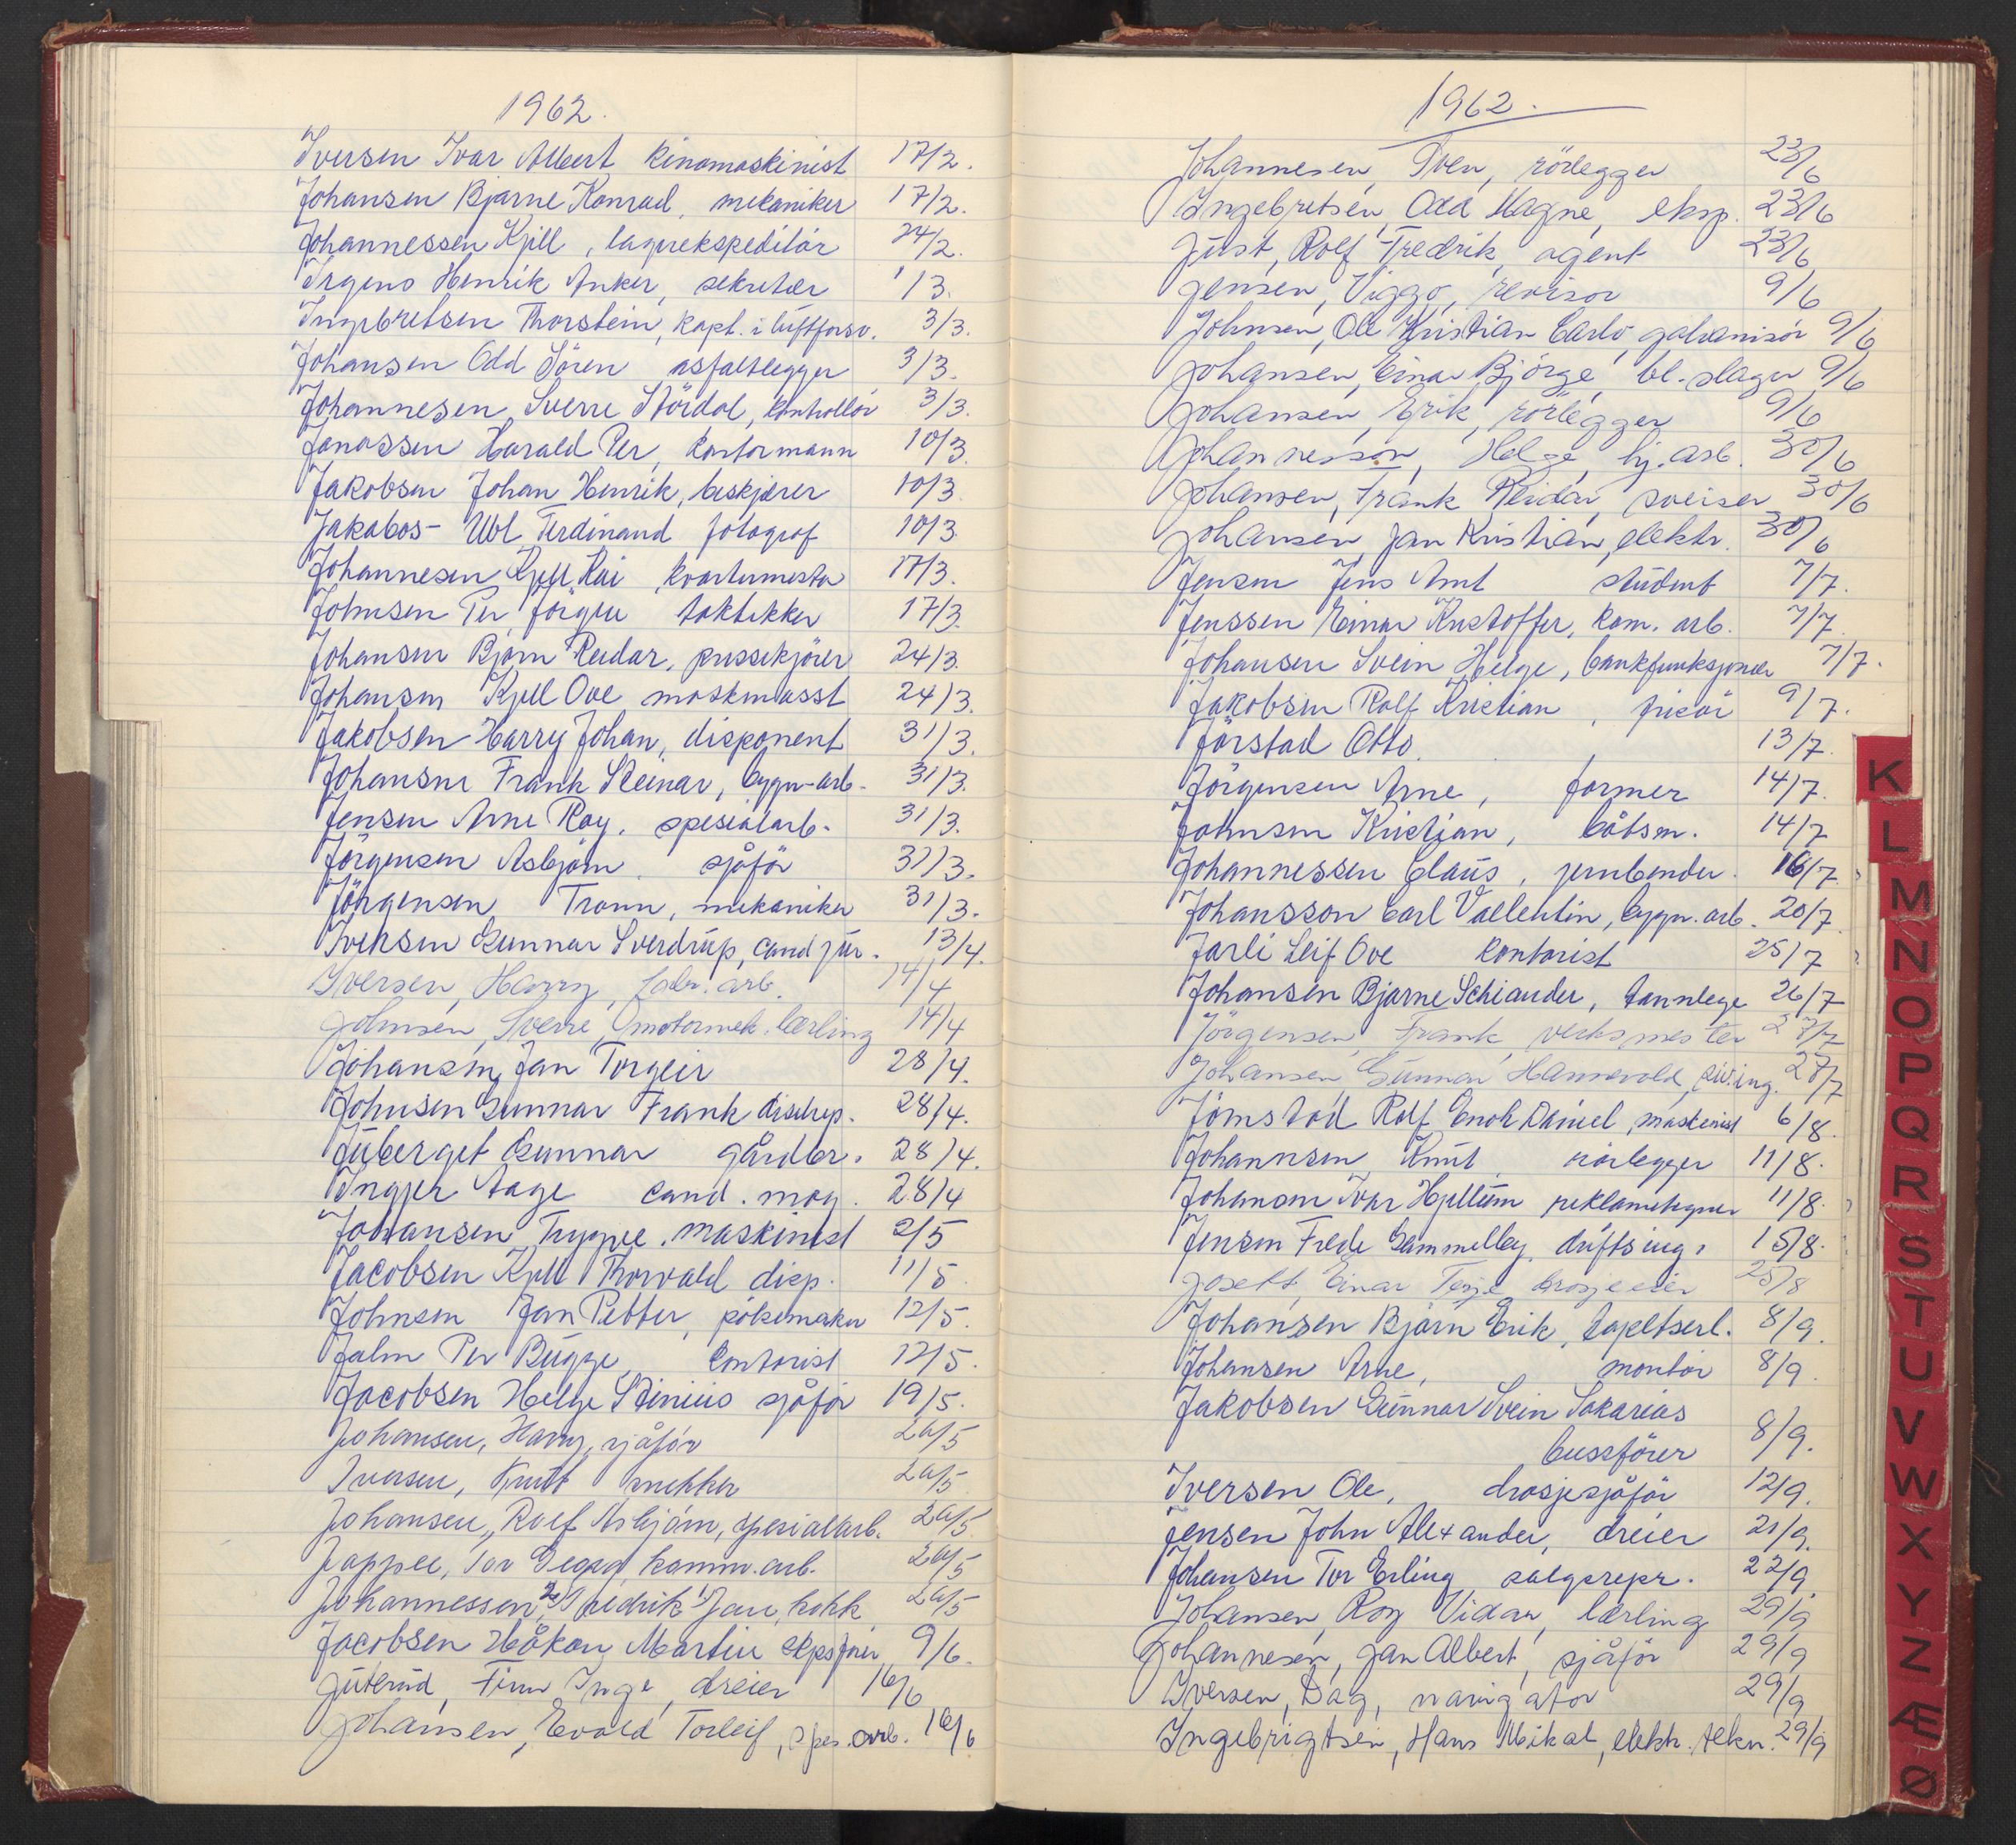 1962.
Iversen Ivar Albert kinomaskinist 17/2.
Johansen Bjarne Konrad, mekaniker 17/2.
Johannessen Kjell, lagerekspeditör 24/2.
Irgens Henrik Anker, sekretær 1/3.
Ingebretsen Thorstein, kapt. i luftforsv. 3/3.
Johansen Odd Sören asfaltlegger 3/3.
Johannesen, Sverre Stördal, kontrollör 3/3.
Janassen Harald Per, kontormann 10/3.
Jakobsen Johan Henrik, beskjærer 10/3.
Jakobos- Ubl Ferdinand fotograf 10/3.
Johannesen Kjell Kai kvartermester 17/3.
Johnsen Per Jörgen taktekker 17/3.
Johansen Bjørn Reidar, pussekjörer 24/3.
Johansen Kjell Ove maskinasst 24/3.
Jakobsen Harry Johan, disponent 31/3.
Johansen Frank Steinar, bygn-arb. 31/3.
Jensen Arne Roy, spesialarb. 31/3.
Jörgensen Asbjörn. sjåför 31/3.
Jörgensen Tronn, mekaniker 31/3.
Iversen Gunnar Sverdrup, cand jur. 13/4.
Iversen, Harry, fabr. arb. 14/4
Johnsen, Sverre, motormek. lærling 14/4
Johansen, Jan Torgeir 28/4.
Johnsen Gunnar Frank distrep. 28/4.
Juberget Gunnar gårdbr. 28/4.
Ingier Aage cand. mag. 28/4
Johansen Trygve. maskinist 2/5
Jacobsen Kjell Thorvald disp. 11/5
Johnsen Jan Petter, pölsemaker 12/5.
Jalm Per Bugge, kontorist 12/5.
Jacobsen Helge Stinius sjåför 19/5.
Johansen, Harry, sjåför 26/5
Iversen, Knut snekker 26/5
Johansen, Rolf Asbjörn, spesialarb. 26/5
Jappee, Tor Georg, komm. arb. 26/5
Johannessen, 2) Fredrik 1) Jan, kokk 26/5
Jacobsen Håkon Martin 9/6.
Juterud, Finn Inge, dreier 16/6
Johansen, Evald Torleif, spes. arb. 16/6
1962.
Johannesen, Sven, rörlegger 23/6
Ingebretsen, Odd Magne, eksp. 23/6
Just, Rolf Fredrik, agent 23/6
Jensen, Viggo, revisor 9/6
Johnsen, Ole Kristian Carlo, galvanisör 9/6
Johansen, Einar Bjørge, bl.-slager 9/6
Johansen, Erik, rörlegger 9/6
Johannesson, Helge, hj. arb. 30/6
Johansen, Frank Reidar, sveiser 30/6
Johansen, Jan Kristian, elektr. 30/6
Jensen Jens Arnt student 7/7.
Jenssen Einar Kristoffer, kom. arb. 7/7
Johansen Svein Helge, bankfunksjonær 7/7.
Jakobsen Rolf Kristian, frisör 9/7.
Jörstad Otto. 13/7.
Jörgensen Arne, former 14/7.
Johnsen Kristian, båtsm. 14/7
Johannessen Claus, jernbender. 16/7.
Johansson Carl Vallentin, bygn. arb. 20/7.
Jarli Leif Ove kontorist 25/7
Johansen Bjarne Schiander, tannlege 26/7
Jörgensen, Frank, verksmester 27/7
Johansen, Gunnar Hannevold, siv.ing. 27/7
Jömstad Rolf Enok Daniel, maskinist 6/8.
Johannsen, Knut, rörlegger 11/8.
Johansen Ivar Hjellum reklametegner 11/8.
Jensen Frede Gammelby, driftsing. 15/8.
Josett, Einar Terje drosjeeier 25/8
Johansen Bjørn Erik, tapetserl. 8/9.
Johansen Arne, montör 8/9.
Jakobsen Gunnar Svein Sakarias
bussförer 8/9.
Iversen Ole, drosjesjåför 12/9.
Jensen John Alexander, dreier 21/9.
Johansen Tor Erling salgsrepr. 22/9.
Johansen, Roy Vidar, lærling 29/9
Johannesen, Jan Albert, sjåför 29/9
Iversen, Dag, navigatör 29/9
Ingebrigtsen, Hans Mikal, elektr. tekn. 29/9
K
L
M
N
O
P
Q
R
S
T
U
V
W
X
Y
Z
Æ
Ø